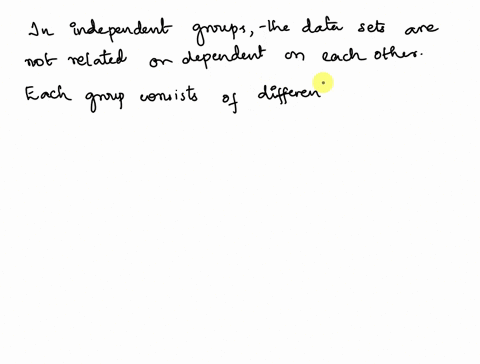 In independent groups, the data sets are
not related or dependent on each other.
Each group consists of differen